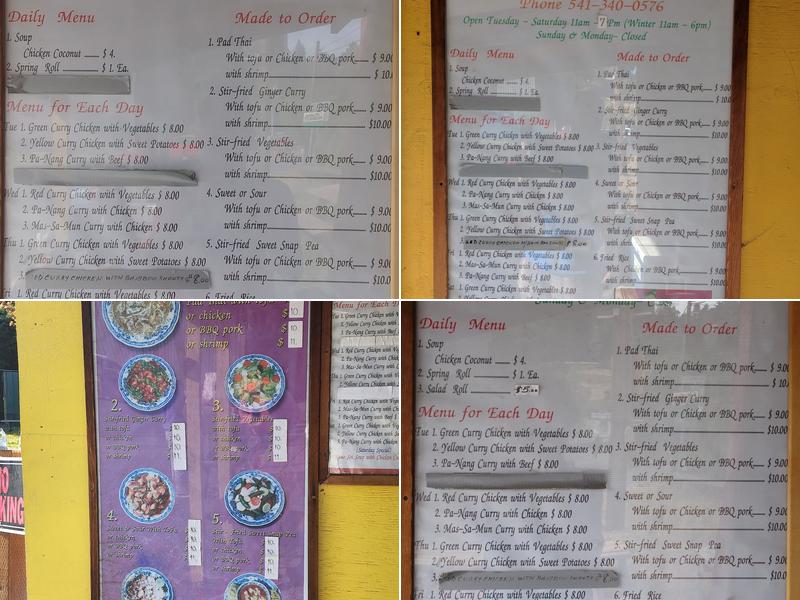 Daily Menu
1. Soup
Chicken Coconut ...... $ 4.
2. Spring Roll ............ $ 1. Ea.
Menu for Each Day
Tue 1. Green Curry Chicken with Vegetables $ 8.00
2. Yellow Curry Chicken with Sweet Potatoes $ 8.00
3. Pa-Nang Curry with Beef $ 8.00
Wed 1. Red Curry Chicken with Vegetables $ 8.00
2. Pa-Nang Curry with Chicken $ 8.00
3. Mas-Sa-Mun Curry with Chicken $ 8.00
Thu 1. Green Curry Chicken with Vegetables $ 8.00
2. Yellow Curry Chicken with Sweet Potatoes $ 8.00
3. RED CURRY CHICKEN WITH BAMBOO SHOOTS $8.00
Fri 1. Red Curry Chicken with Vegetables $ 8.00
Made to Order
1. Pad Thai
With tofu or Chicken or BBQ pork.... $ 9.00
with shrimp $ 10.
2. Stir-fried Ginger Curry
With tofu or Chicken or BBQ pork $ 9.00
with shrimp $10.00
3. Stir-fried Vegetables
With tofu or Chicken or BBQ pork $ 9.00
with shrimp $10.00
4. Sweet or Sour
With tofu or Chicken or BBQ pork $ 9.00
with shrimp $10.00
5. Stir-fried Sweet Snap Pea
With tofu or Chicken or BBQ pork $ 9.00
with shrimp $10.0
6. Fried Rice
Phone 541-340-0576
Open Tuesday - Saturday 11am - 7 Pm (Winter 11am - 6pm)
Sunday & Monday- Closed
Daily Menu
1. Soup
Chicken Coconut ...... $ 4.
2. Spring Roll ............ $ 1. Ea.
Menu for Each Day
Tue 1. Green Curry Chicken with Vegetables $ 8.00
2. Yellow Curry Chicken with Sweet Potatoes $ 8.00
3. Pa-Nang Curry with Beef $ 8.00
Wed 1. Red Curry Chicken with Vegetables $ 8.00
2. Pa-Nang Curry with Chicken $ 8.00
3. Mas-Sa-Mun Curry with Chicken $ 8.00
Thu 1. Green Curry Chicken with Vegetables $ 8.00
2. Yellow Curry Chicken with Sweet Potatoes $ 8.00
3. RED CURRY CHICKEN WITH BAMBOO SHOOTS $ 8.00
Fri 1. Red Curry Chicken with Vegetables $ 8.00
2. Mas-Sa-Mun Curry with Chicken $ 8.00
3. Pa-Nang Curry with Beef $ 8.00
Sat 1. Green Curry Chicken with Vegetables $ 8.00
Made to Order
1. Pad Thai
With tofu or Chicken or BBQ pork $ 9.00
with shrimp $ 10.00
2. Stir-fried Ginger Curry
With tofu or Chicken or BBQ pork $ 9.00
with shrimp $10.00
3. Stir-fried Vegetables
With tofu or Chicken or BBQ pork $ 9.00
with shrimp $10.00
4. Sweet or Sour
With tofu or Chicken or BBQ pork $ 9.00
with shrimp $10.00
5. Stir-fried Sweet Snap Pea
With tofu or Chicken or BBQ pork $ 9.00
with shrimp $10.00
6. Fried Rice
With Chicken or BBQ pork $ 9.00
with shrimp $10.00
or chicken $ 10.
or BBQ pork $
or shrimp $ 11.
2.
Stir-fried Ginger Curry
with tofu 10.
or chicken 10.
or BBQ pork 10.
or shrimp 11.
3.
Stir-fried Vegetables
with tofu 10.
or chicken 10.
or BBQ pork 10.
or shrimp
4.
Sweet & Sour With Tofu
or chicken
or BBQ pork
or shrimp
5.
Stir - Fried Sweet Snap Pea
With Tofu
or chicken
or BBQ pork
or shrimp
Menu for Each D
(Saturday Special)
Sunday & Monday- Closed
Daily Menu
1. Soup
Chicken Coconut ...... $ 4.
2. Spring Roll ............ $ 1. Ea.
3. Salad Roll ............
Menu for Each Day
Tue 1. Green Curry Chicken with Vegetables $ 8.00
2. Yellow Curry Chicken with Sweet Potatoes $ 8.00
3. Pa-Nang Curry with Beef $ 8.00
Wed 1. Red Curry Chicken with Vegetables $ 8.00
2. Pa-Nang Curry with Chicken $ 8.00
3. Mas-Sa-Mun Curry with Chicken $ 8.00
Thu 1. Green Curry Chicken with Vegetables $ 8.00
2. Yellow Curry Chicken with Sweet Potatoes $ 8.00
3. RED CURRY CHICKEN WITH BAMBOO SHOOTS $8.00
Fri 1. Red Curry Chicken with Vegetables $ 8.00
Made to Order
1. Pad Thai
With tofu or Chicken or BBQ pork.... $ 9.0
with shrimp $ 10.
2. Stir-fried Ginger Curry
With tofu or Chicken or BBQ pork $ 9.00
with shrimp $10.00
3. Stir-fried Vegetables
With tofu or Chicken or BBQ pork $ 9.00
with shrimp $10.00
4. Sweet or Sour
With tofu or Chicken or BBQ pork $ 9.00
with shrimp $10.00
5. Stir-fried Sweet Snap Pea
With tofu or Chicken or BBQ pork $ 9.00
with shrimp $10.0
6. Fried Rice